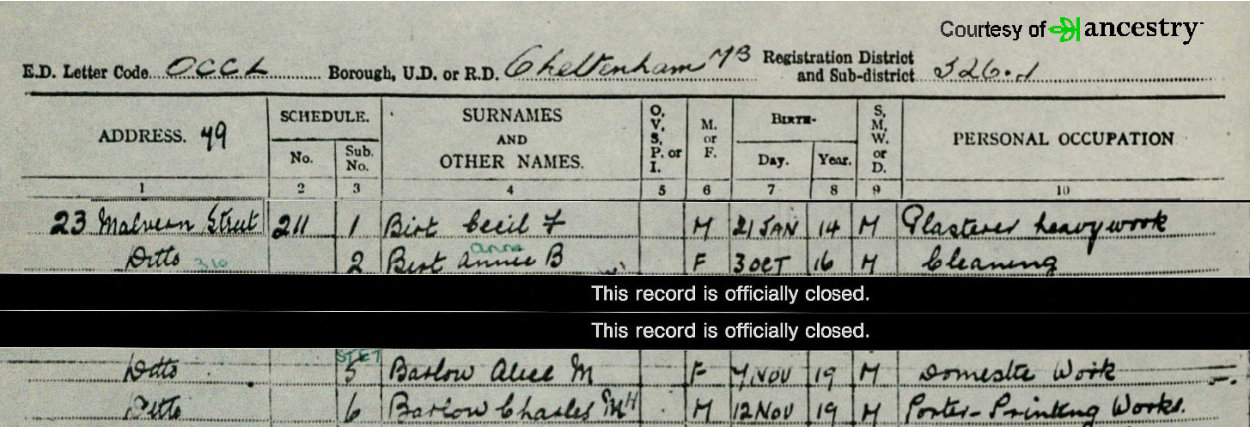 Courtesy of ancestry
E.D. Letter Code OCCL Borough, U.D. or R.D. Cheltenham MB Registration District and Sub-district 326.1
ADDRESS. 49 SCHEDULE. No. Sub. No. SURNAMES AND OTHER NAMES. O, V, S, P. or I. M. or F. BIRTH- Day. Year. S, M, W. or D. PERSONAL OCCUPATION
1 2 3 4 5 6 7 8 9 10
23 Malvern Street 211 1 Birt Cecil F M 21 JAN 14 M Plasterer heavy work
Anna
Ditto 310 2 Birt Annie B F 3 OCT 16 M Cleaning
This record is officially closed.
This record is officially closed.
STET
Ditto 5 Barlow Alice M F 7 NOV 19 M Domestic Work
Ditto 6 Barlow Charles M H M 12 NOV 19 M Porter-Printing Works.